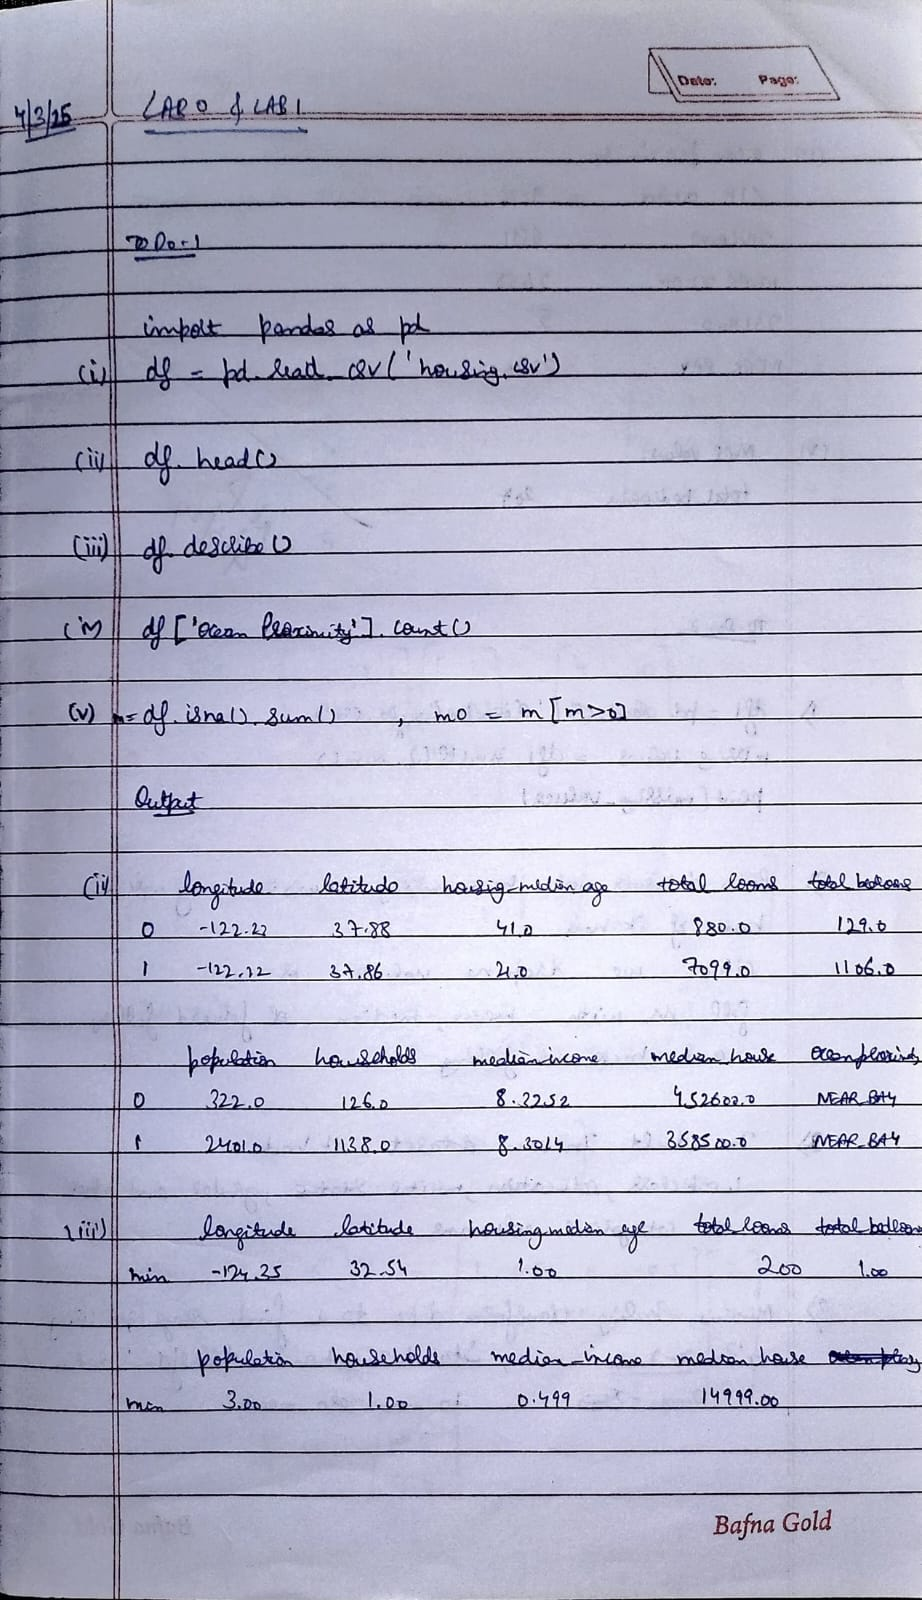 Date: Page:
4/3/25 LAB 0 & LAB 1
TO DO-1
import pandas as pd
(i) df = pd. read_csv ('housing.csv')
(ii) df. head()
(iii) df. describe ()
(iv) df ['Ocean Proximity']. count ()
(v) m= df. isna(). sum() , m0 = m [m>0]
Output
(ii) longitude latitude housig_median age total rooms total bedrooms
0 -122.23 37.88 41.0 880.0 129.0
1 -122.22 37.86 21.0 7099.0 1106.0
population households median income median house ocean proximity
0 322.0 126.0 8.3252 452602.0 NEAR BAY
1 2401.0 1138.0 8.3014 358500.0 NEAR_BAY
(iii) longitude latitude housing median age total rooms total bedrooms
min -124.35 32.54 1.00 200 1.00
population households median_income median house
min 3.00 1.00 0.499 14999.00
Bafna Gold